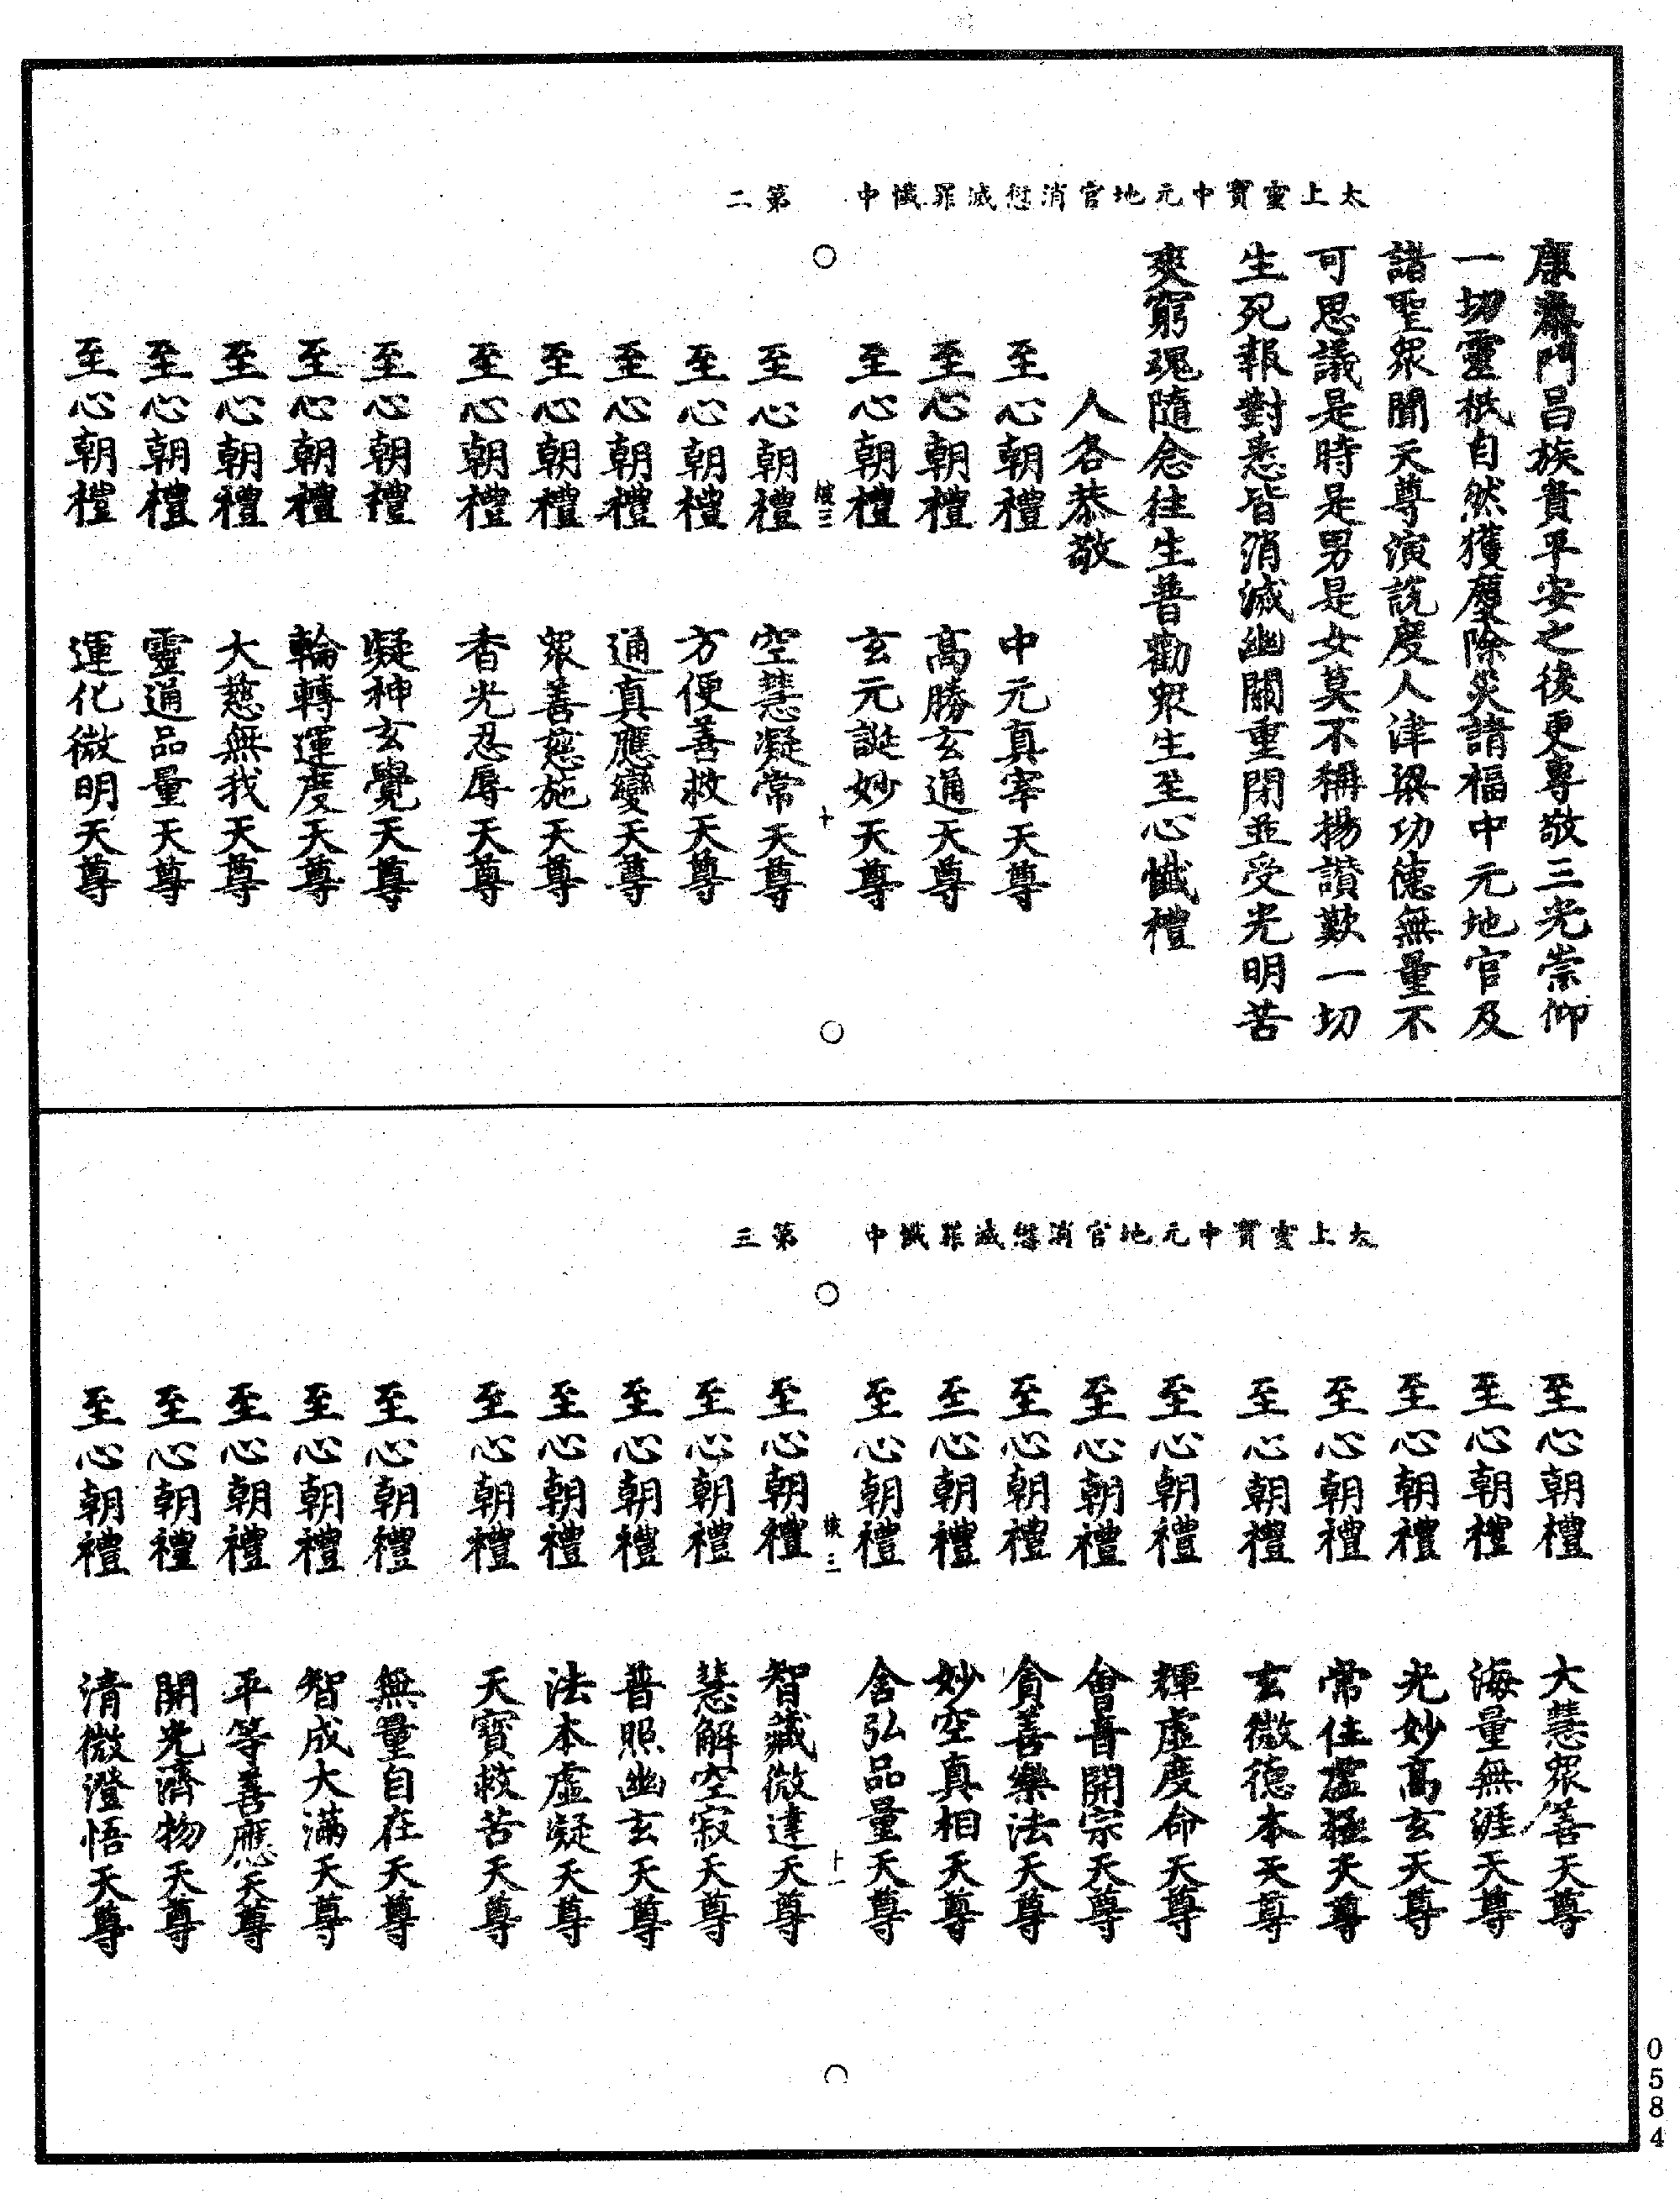 太上靈寶中元地官消愆滅罪懺中　第二
康寧門昌族貴平安之後更專敬三光崇仰
一切靈祇自然獲慶除災請福中元地官及
諸聖眾聞天尊演說度人津梁功德無量不
可思議是時是男是女莫不稱揚讚歎一切
生死報對悉皆消滅幽關重閉並受光明苦
爽窮魂隨念往生普勸眾生至心懺禮
人各恭敬
至心朝禮　中元真宰天尊
至心朝禮　高勝玄通天尊
至心朝禮　玄元誕妙天尊
三　十
至心朝禮　空慧凝常天尊
至心朝禮　方便善救天尊
至心朝禮　通真應變天尊
至心朝禮　眾善慈施天尊
至心朝禮　香光忍辱天尊
至心朝禮　凝神玄覺天尊
至心朝禮　輪轉運度天尊
至心朝禮　大慈無我天尊
至心朝禮　靈通品量天尊
至心朝禮　運化微明天尊
太上靈寶中元地官消愆滅罪懺中　第三
至心朝禮　大慧眾善天尊
至心朝禮　海量無涯天尊
至心朝禮　光妙高玄天尊
至心朝禮　常住虛極天尊
至心朝禮　玄微德本天尊
至心朝禮　輝虛度命天尊
至心朝禮　會音開宗天尊
至心朝禮　貪善樂法天尊
至心朝禮　妙空真相天尊
至心朝禮　含弘品量天尊
三　十一
至心朝禮　智藏微達天尊
至心朝禮　慧解空寂天尊
至心朝禮　普照幽玄天尊
至心朝禮　法本虛凝天尊
至心朝禮　天寶救苦天尊
至心朝禮　無量自在天尊
至心朝禮　智成大滿天尊
至心朝禮　平等善應天尊
至心朝禮　開光濟物天尊
至心朝禮　清微澄悟天尊
0584